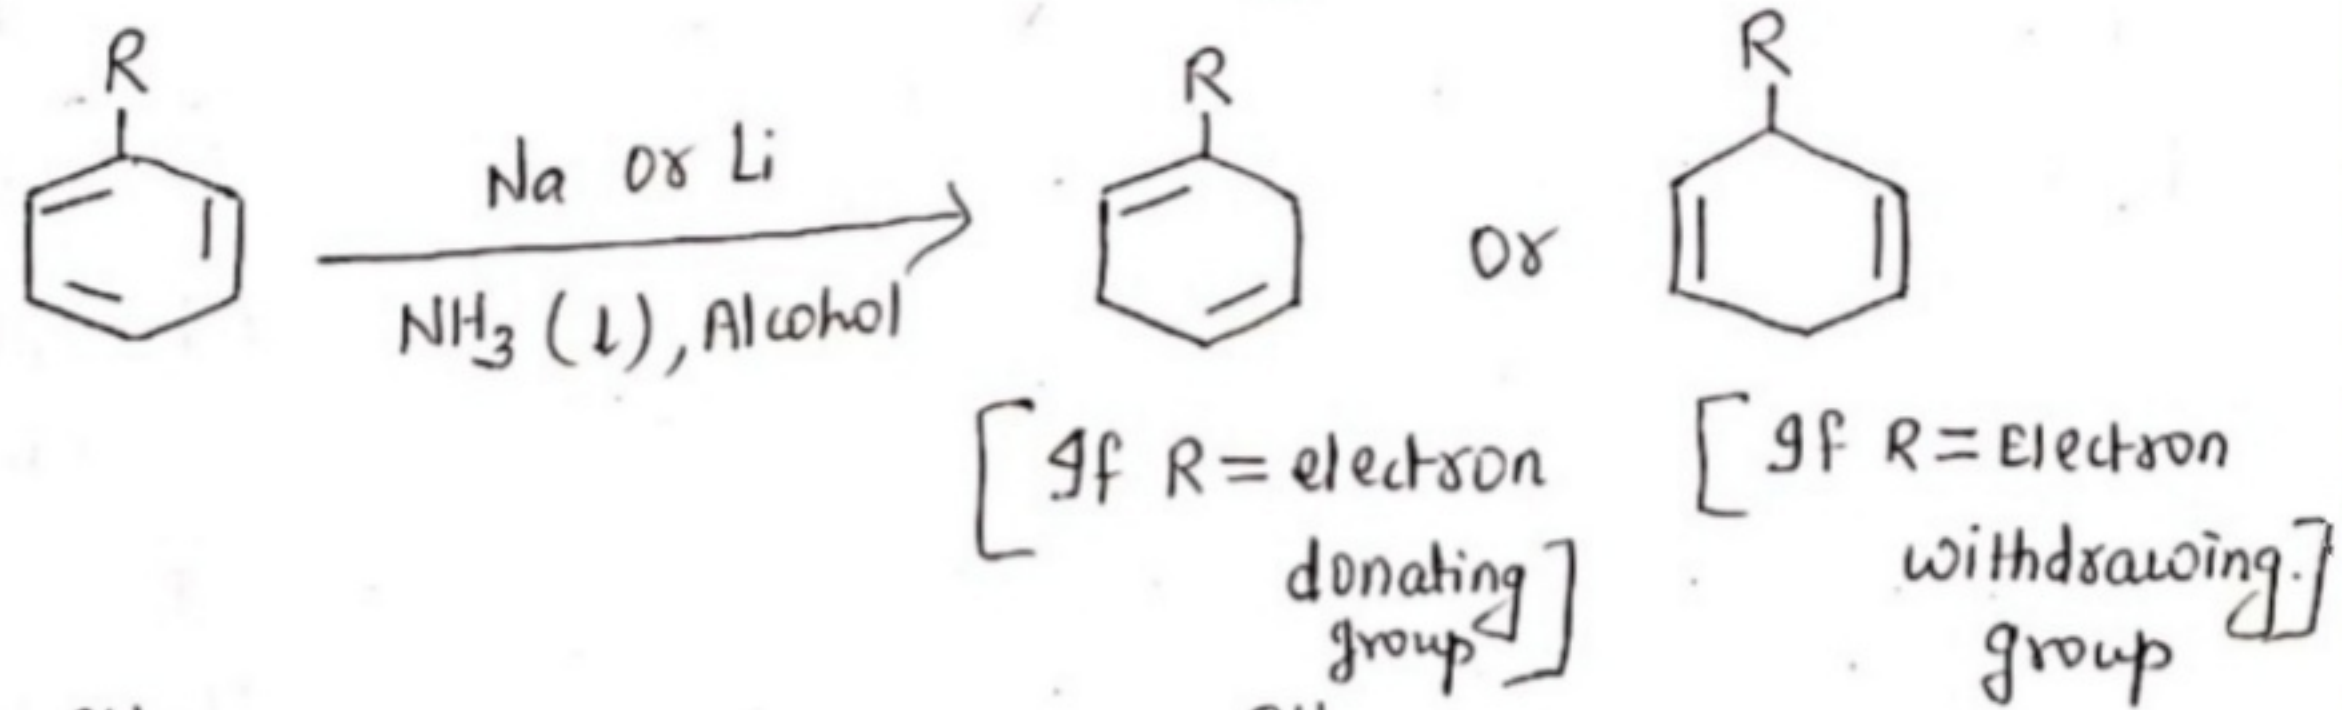 R
R
R
Na or Li
NH3 (l), Alcohol
or
[If R = electron
donating
group]
[If R = Electron
withdrawing.]
group